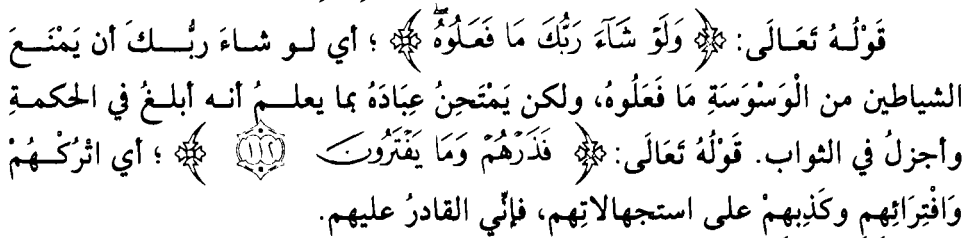 قَوْلُهُ تَعَالَى: ﴿ وَلَوْ شَآءَ رَبُّكَ مَا فَعَلُوهُۖ ﴾ ؛ أي لو شاءَ ربُّكَ أن يَمْنَعَ
الشياطين من الْوَسْوَسَةِ مَا فَعَلُوهُ، ولكن يَمْتَحِنُ عِبَادَهُ بما يعلمُ أنه أبلغُ في الحكمةِ
وأجزلُ في الثواب. قَوْلُهُ تَعَالَى: ﴿ فَذَرْهُمْ وَمَا يَفْتَرُونَ ١١٢ ﴾ ؛ أي اتْرُكْهُمْ
وَافْتِرَائِهِم وكَذِبِهِمْ على استجهالاتِهِم، فإنِّي القادرُ عليهم.